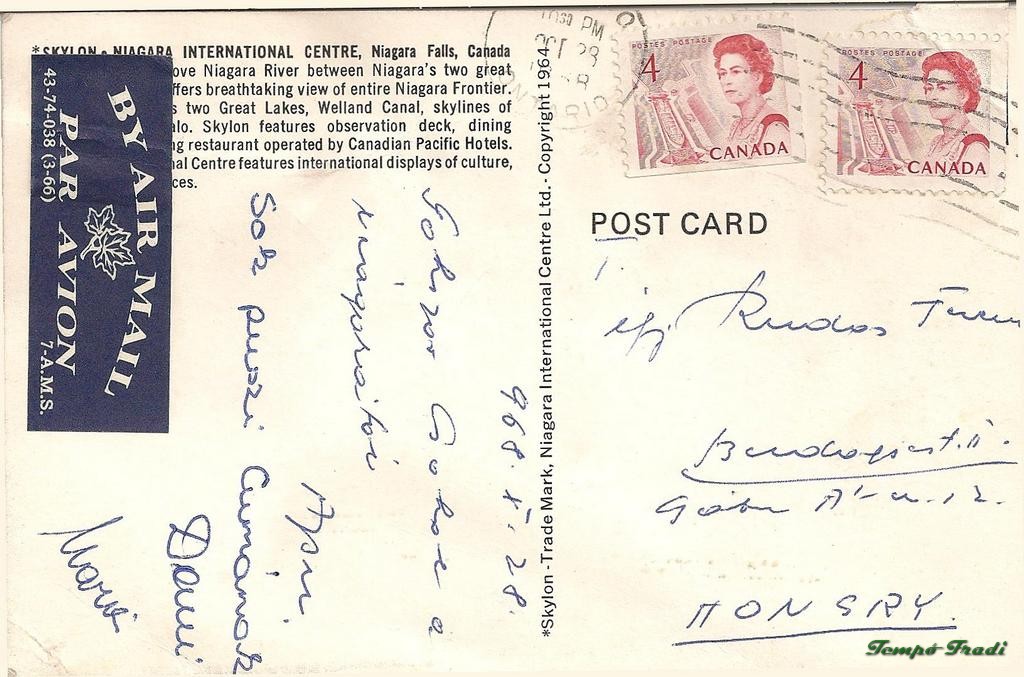 *SKYLON - NIAGARA INTERNATIONAL CENTRE, Niagara Falls, Canada
ove Niagara River between Niagara's two great
ffers breathtaking view of entire Niagara Frontier.
s two Great Lakes, Welland Canal, skylines of
alo. Skylon features observation deck, dining
g restaurant operated by Canadian Pacific Hotels.
al Centre features international displays of culture,
ces.
BY AIR MAIL
PAR AVION
43-74-038 (3-66)
7-A.M.S.
968. XI. 28.
Sok puszi
Apu.
Dami
Mária
*Skylon - Trade Mark, Niagara International Centre Ltd. - Copyright 1964
PM
ONTARIO
POSTES POSTAGE
4
CANADA
POSTES POSTAGE
4
CANADA
POST CARD
ifj. Rudas
Budapest. II.
HONGRY.
Tempó Tradi